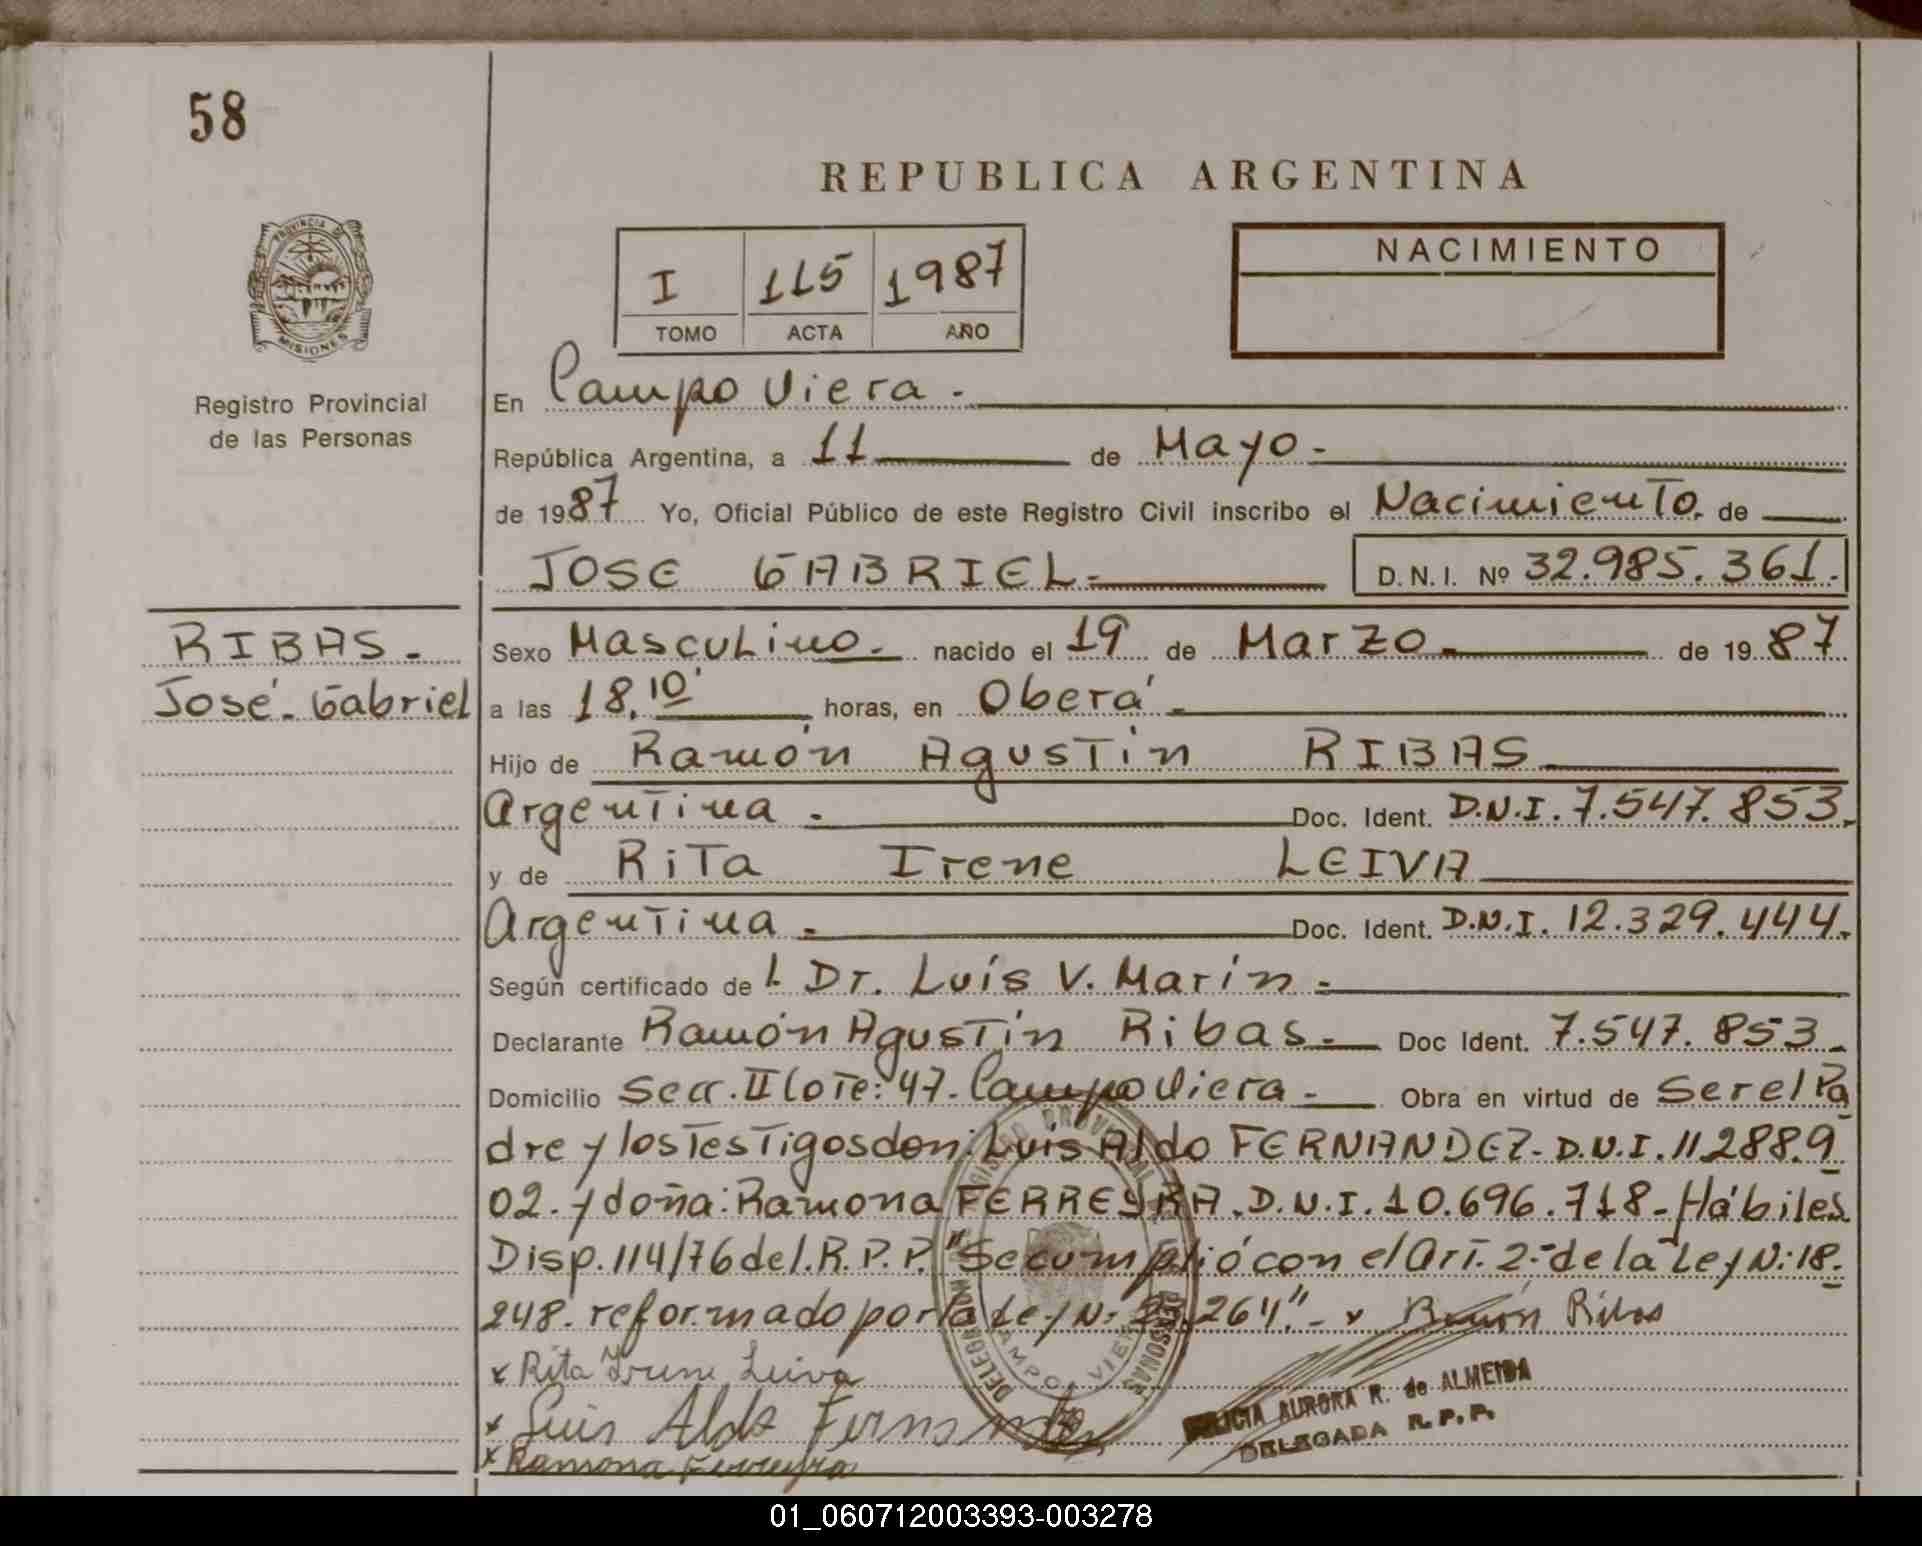 58
REPUBLICA ARGENTINA
PROVINCIA DE
MISIONES
Registro Provincial
de las Personas
I 115 1987
TOMO ACTA AÑO
NACIMIENTO
En Campo Viera.
República Argentina, a 11 de Mayo.
de 1987 Yo, Oficial Público de este Registro Civil inscribo el Nacimiento. de
JOSE GABRIEL.
D.N.I. Nº 32.985.361.
RIBAS.
José Gabriel
Sexo Masculino. nacido el 19 de Marzo. de 1987
a las 18.10' horas, en Oberá.
Hijo de Ramón Agustin RIBAS.
Argentina. Doc. Ident. D.N.I. 7.547.853.
y de Rita Irene LEIVA
Argentina. Doc. Ident. D.N.I. 12.329.444.
Según certificado de l. Dr. Luis V. Marin.
Declarante Ramón Agustin Ribas. Doc Ident. 7.547.853.
Domicilio Secc. II lote: 47. Campo Viera. Obra en virtud de Ser el Pa
dre y los Testigos don: Luis Aldo FERNANDEZ. D.N.I. 11288.9
02. y doña: Ramona FERREYRA. D.N.I. 10.696.718-Hábiles
Disp. 114/76 del. R.P.P. "Se cumplió con el Art. 2- de la Ley N: 18.
248. reformado por la Ley N: 23.264". x Ramón Ribas
x Rita Irene Leiva
x Luis Aldo Fernandez
x Ramona Ferreyra
FELICIA AURORA R. de ALMEIDA
DELEGADA R.P.P.
01_060712003393-003278